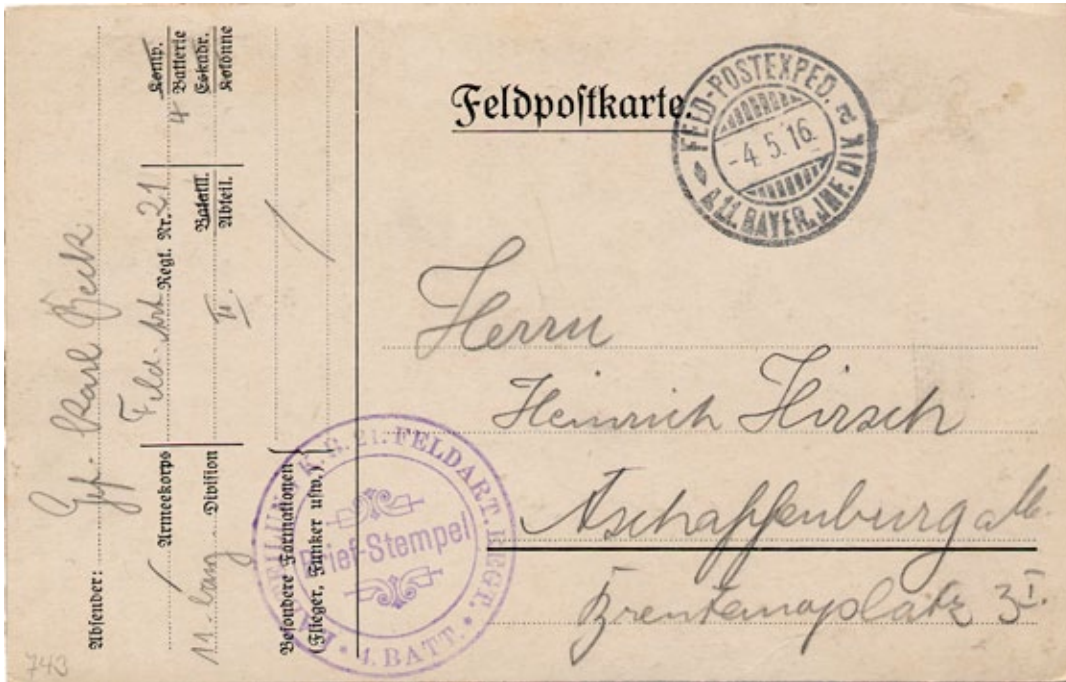 Feldpostkarte.
FELD-POSTEXPED.
-4.5.16.
A.11.BAYER.INF.DIV.
Herrn
Heinrich Hirsch
Aschaffenburg a/M.
Brentanoplatz 3I.
Absender: Gef. Karl Beck
Feld-Art Regt. Nr. 21
4
Komp.
Batterie
Eskadr.
Kolonne
Armeekorps
II.
Bataill.
Abteil.
11. bay. Division
Besondere Formationen
(Flieger, Funker usw.)
K.B. 21. FELDART. REGT.
Brief-Stempel
BATT.
743